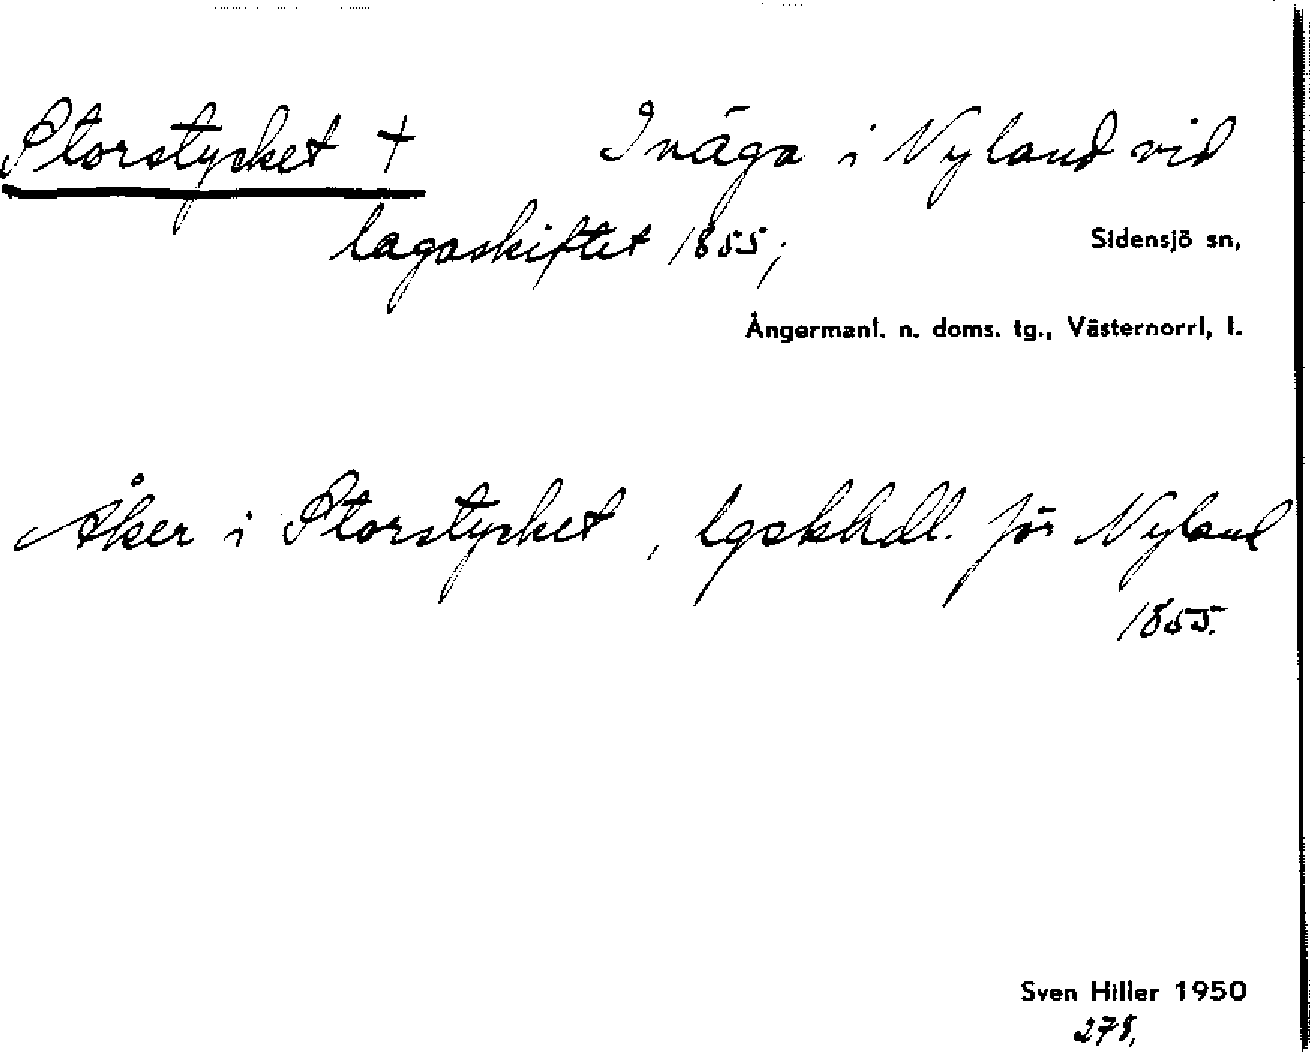 Storstycket + Inäga i Nyland vid
lagaskiftet 1855;
Sidensjö sn,
Ångermanl. n. doms. tg., Västernorrl, l.
Åker i Storstycket, lgskhdl. för Nyland
1855.
Sven Hiller 1950
278,